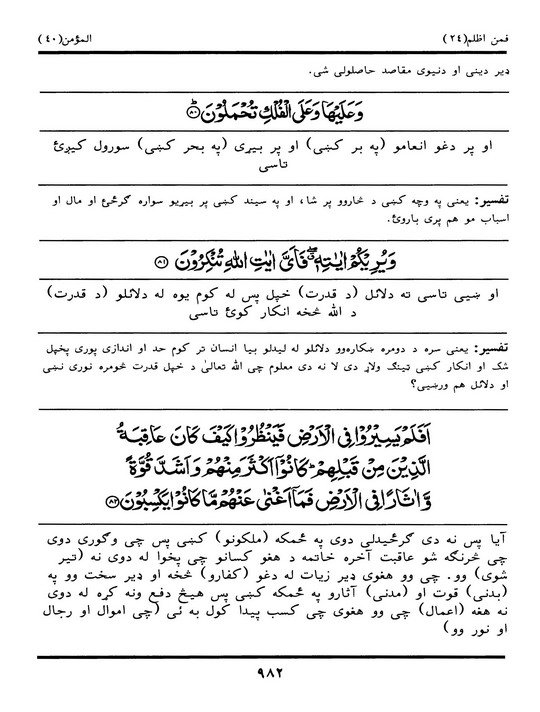 فمن اظلم(٢٤) المؤمن(٤٠)
ډیر دیني او دنیوي مقاصد حاصلولی شی.
وَعَلَيْهَا وَعَلَى الْفُلْكِ تُحْمَلُوْنَ ﴿٨٠﴾
او پر دغو انعامو (په بر کښی) او پر بیړی (په بحر کښی) سورول کیږئ
تاسی
تفسیر: یعنی په وچه کښی د څارو‌و پر شا، او په سیند کښی پر بیړیو سواره ګرځئ او مال او
اسباب مو هم پری باروئ.
وَيُرِيْكُمْ اٰيٰتِهٖ فَاَىَّ اٰيٰتِ اللّٰهِ تُنْكِرُوْنَ ﴿٨١﴾
او ښیی تاسی ته دلائل (د قدرت) خپل پس له کوم یوه له دلائلو (د قدرت)
د الله څخه انکار کوئ تاسی
تفسیر: یعنی سره د دومره ښکاره‌وو دلائلو له لیدلو بیا انسان تر کوم حد او اندازی پوری پخپل
شک او انکار کښی ټینګ ولاړ دی لا نه دی معلوم چی الله تعالیٰ د خپل قدرت څومره نوری نښی
او دلائل هم ورښیی؟
اَفَلَمْ يَسِيْرُوْا فِى الْاَرْضِ فَيَنْظُرُوْا كَيْفَ كَانَ عَاقِبَةُ
الَّذِيْنَ مِنْ قَبْلِهِمْ ؕ كَانُوْۤا اَكْثَرَ مِنْهُمْ وَاَشَدَّ قُوَّةً
وَّاٰثَارًا فِى الْاَرْضِ فَمَاۤ اَغْنٰى عَنْهُمْ مَّا كَانُوْا يَكْسِبُوْنَ ﴿٨٢﴾
آیا پس نه دی ګرځیدلی دوی په ځمکه (ملکونو) کښی پس چی وګوری دوی
چی څرنګه شو عاقبت آخره خاتمه د هغو کسانو چی پخوا له دوی نه (تیر
شوی) وو. چی وو هغوی ډیر زیات له دغو (کفارو) څخه او ډیر سخت وو په
(بدنی) قوت او (مدنی) آثارو په ځمکه کښی پس هیڅ دفع ونه کړه له دوی
نه هغه (اعمال) چی وو هغوی چی کسب پیدا کول به ئی (چی اموال او رجال
او نور وو)
٩٨٢